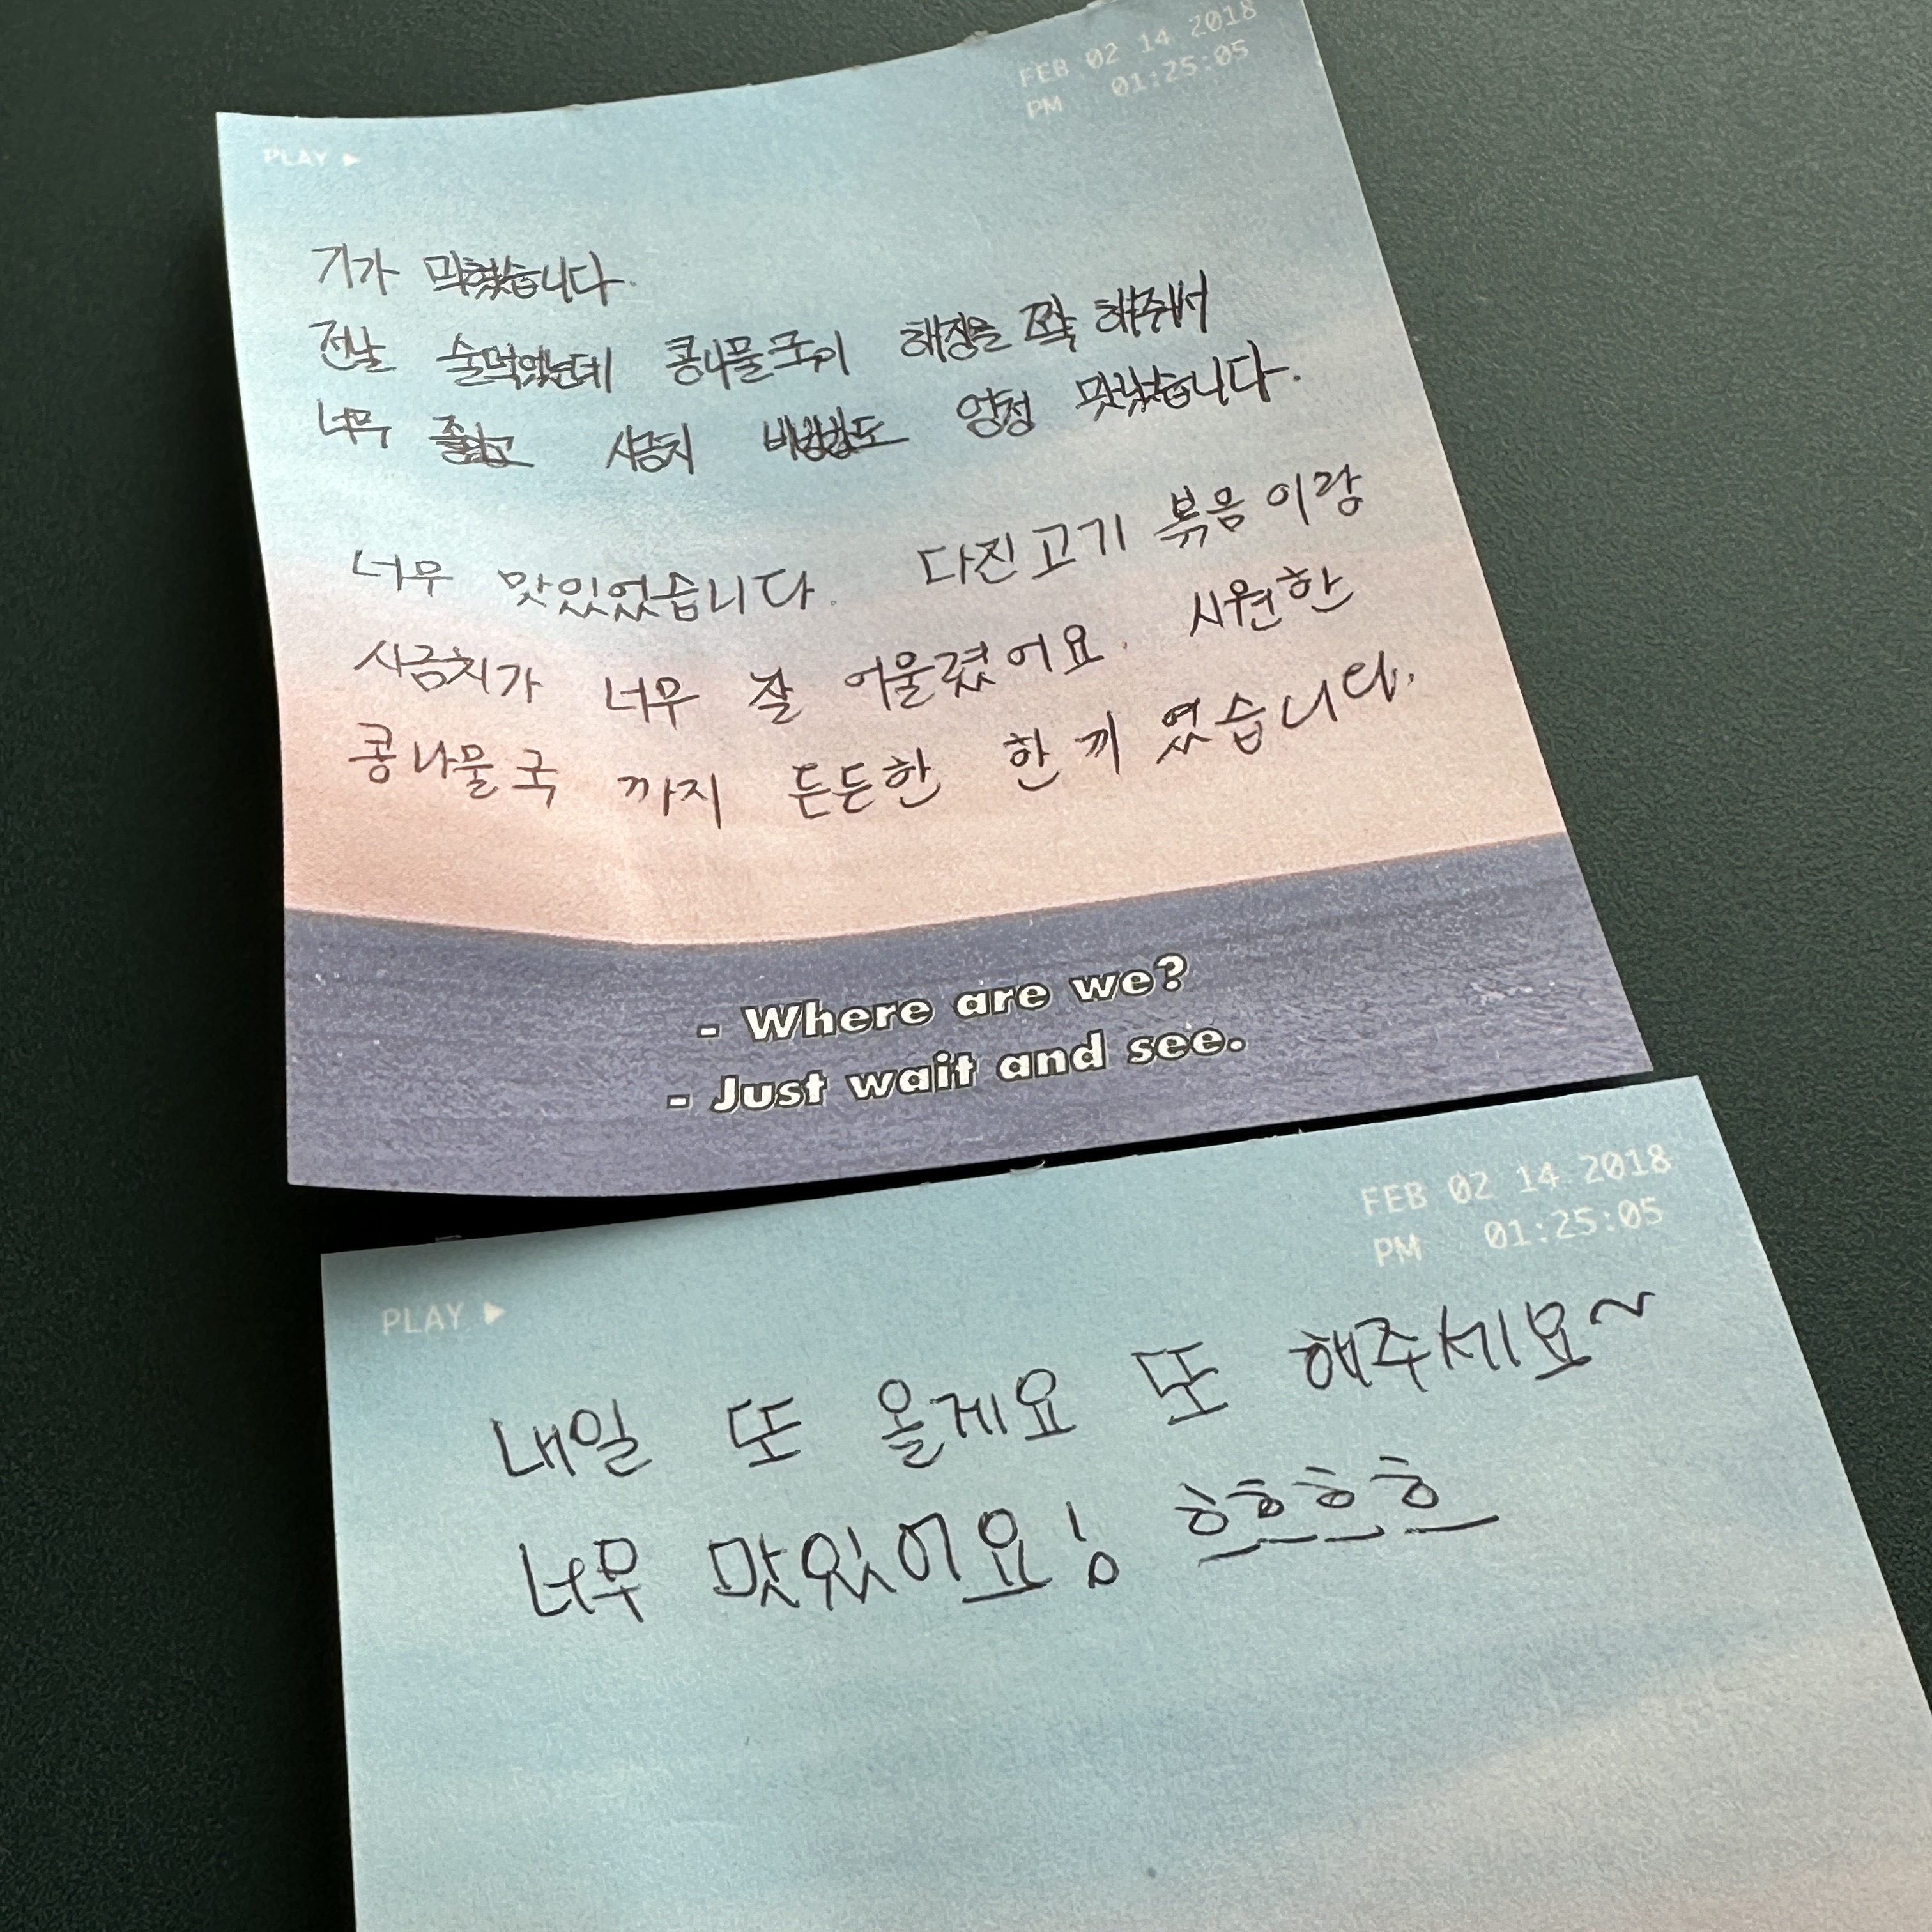 FEB 02 14 2018
PM 01:25:05
PLAY ▶
기가 막혔습니다.
전날 술먹었는데 콩나물국이 해장을 쫙 해주어서
너무 좋았고 시금치 비빔밥도 엄청 맛났습니다.
너무 맛있었습니다. 다진고기 볶음이랑
시금치가 너무 잘 어울렸어요. 시원한
콩나물국 까지 든든한 한끼 였습니다.
- Where are we?
- Just wait and see.
FEB 02 14 2018
PM 01:25:05
PLAY ▶
내일 또 올게요 또 해주세요~
너무 맛있어요! 흐흐흐흐